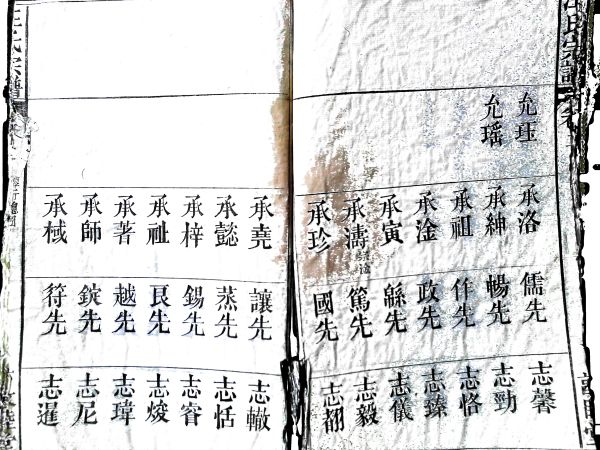 氏宗譜
允珏
允瑤
承洛
承紳
承祖
承淦
承寅
承濤
承珍
承堯
承懿
承梓
承祉
承著
承師
承棫
儒先
暢先
作先
政先
緜先
篤先
國先
讓先
蒸先
錫先
良先
越先
錠先
符先
志馨
志勁
志恪
志臻
志儀
志毅
志翿
志轍
志恬
志睿
志焌
志瑋
志尼
志暹
氏宗譜